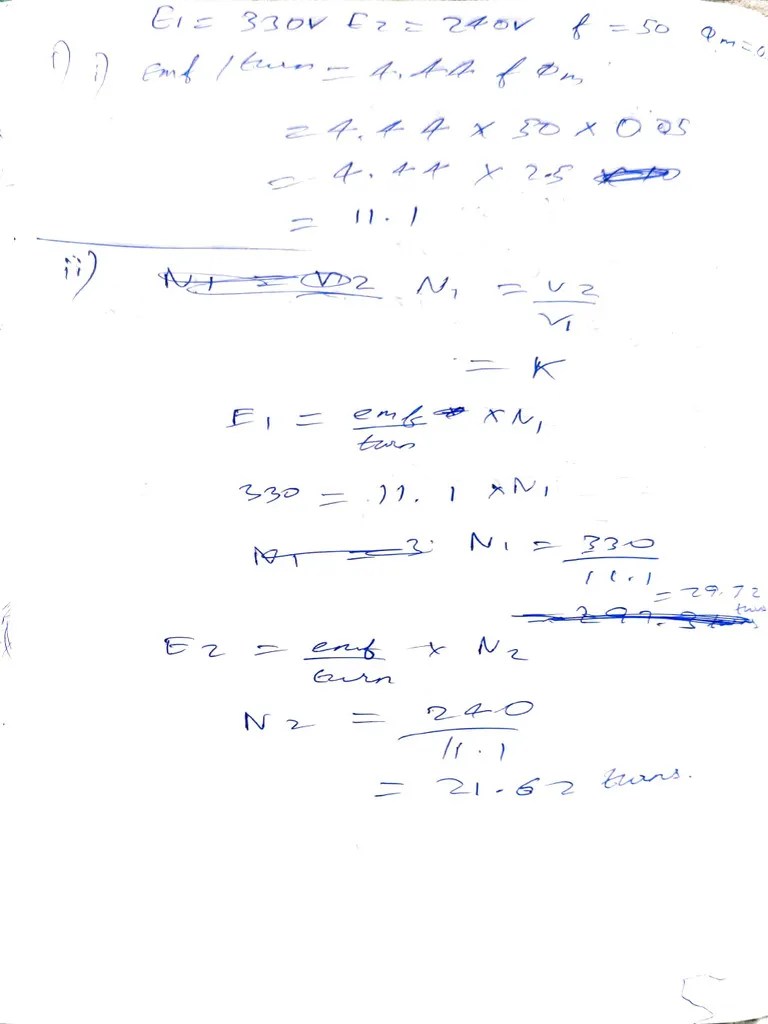 E1 = 330V E2 = 240V f = 50 Φm=0
i) i) emf / turn = 4.44 f Φm
= 4.44 x 50 x 0.05
= 4.44 x 2.5
= 11.1
ii) N1 = V2 N1 = V2 / V1
= K
E1 = emf / turn x N1
330 = 11.1 x N1
N1 = 3 N1 = 330 / 11.1
= 29.72 turns
E2 = emf / turn x N2
N2 = 240 / 11.1
= 21.62 turns.
5